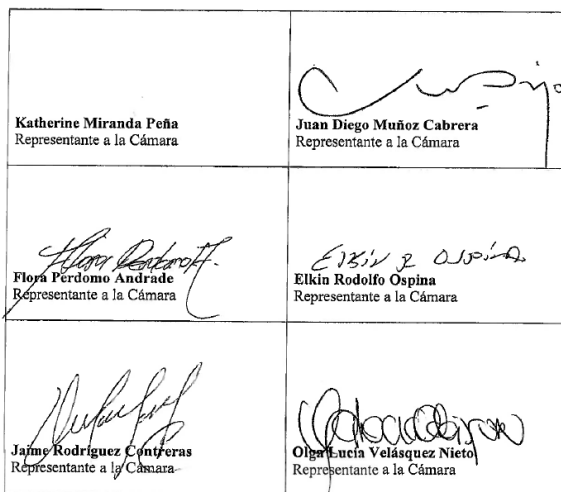 Katherine Miranda Peña
Representante a la Cámara
Juan Diego Muñoz Cabrera
Representante a la Cámara
Flora Perdomo Andrade
Representante a la Cámara
Elkin R Ospina
Elkin Rodolfo Ospina
Representante a la Cámara
Jaime Rodríguez Contreras
Representante a la Cámara
Olga Lucía Velásquez Nieto
Representante a la Cámara